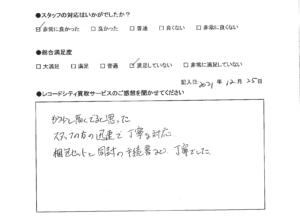 ●スタッフの対応はいかがでしたか?
☑非常に良かった □良かった □普通 □良くない □非常に良くない
●総合満足度
□大満足 □満足 □普通 ☑満足していない □非常に満足していない
記入日 2021年 12月 25日
●レコードシティ買取サービスのご感想を聞かせてください
思った
スタッフの方の迅速で丁寧な対応
梱包セットと同封の手続書など 丁寧でした